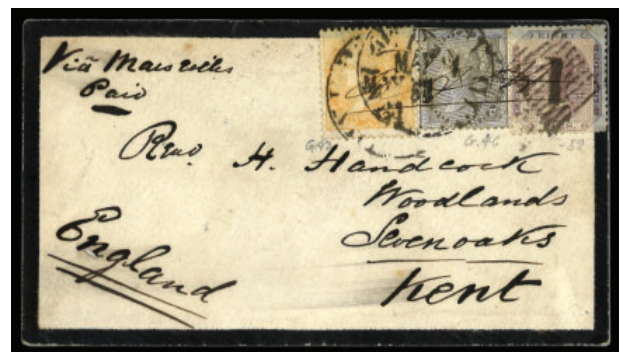 Viâ Marseilles
Paid
EIGHT
1
G.46
-52
Revd. H. Handcock
Woodlands
Sevenoaks
Kent
England